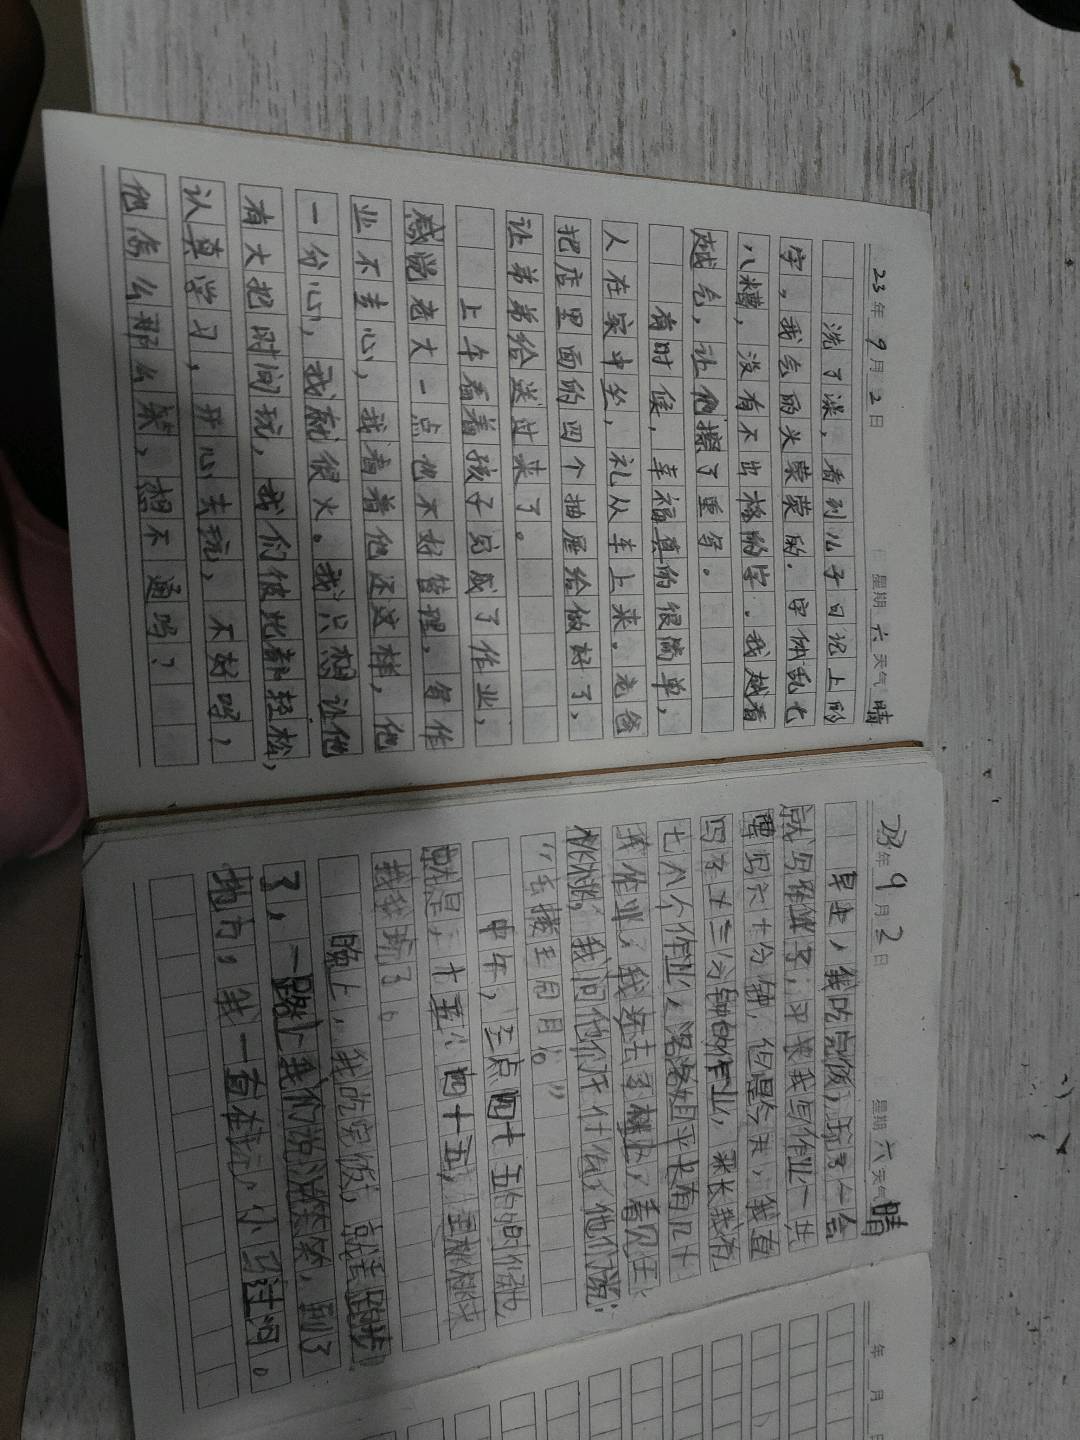 23年9月2日 星期六 天气晴
洗了澡,看到儿子日记上的
字,我气的头蒙蒙的.字体乱七
八糟,没有不出格的字.我越看
越气,让他擦了重写。
有时候,幸福真的很简单,
人在家中坐,礼从车上来。老爸
把店里面的四个抽屉给做好了,
让弟弟给送过来了。
上午看着孩子完成了作业,
感觉老大一点也不好管理,写作
业不专心,我看着他还这样,他
一分心,我就很火。我只想让他
有大把时间玩,我们彼此都轻松,
认真学习,开心去玩、不好吗?
他怎么那么笨、想不通吗?
23年9月2日 星期六 天气晴
早上,我吃完饭,玩了一会
就写作业了,平常我写作业一共
要写六十分钟,但是今天,我直
写了十三分钟的作业,
七八个作业
我作业,我
我问他们干什么,他们说:
"去接王月儿。"
中午,三点四十五的时候
就是,十五、四十五,
晚上,我吃完饭,就去跑步
了,一路上我们说说笑笑,到了
地方,我一直在玩
年 月 日